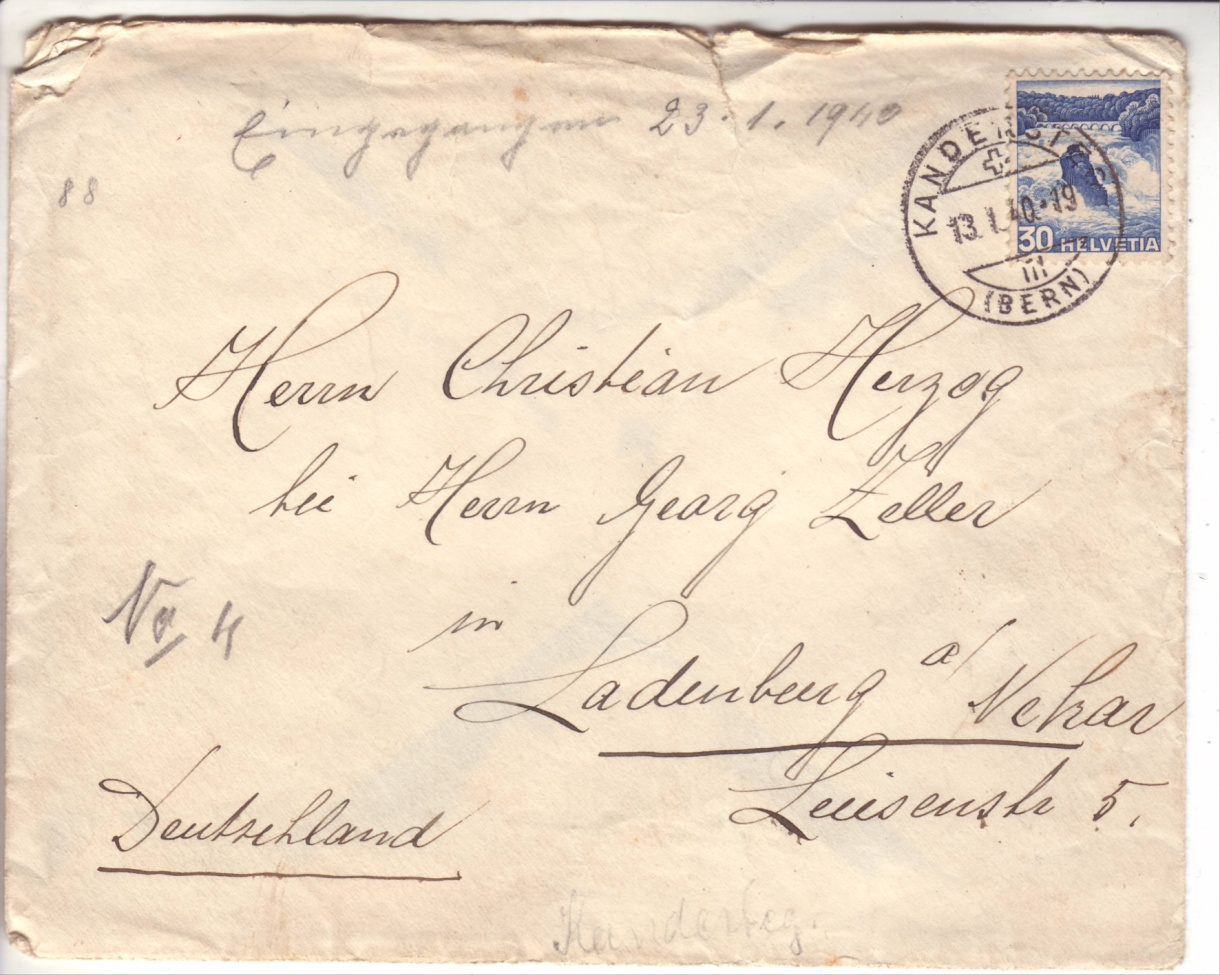 Eingegangen 23.1.1940
88
KANDERSTEG
13.I.40.-19
III
(BERN)
30 HELVETIA
Herrn Christian Herzog
bei Herrn Georg Zeller
in
Ladenburg a/ Nekar
Luisenstr 5.
No 4
Deutschland